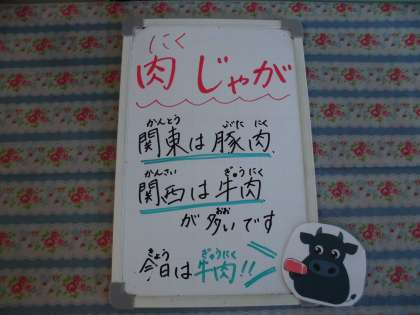 にく
肉じゃが
かんとう ぶた にく
関東は豚肉
かんさい ぎゅうにく
関西は牛肉
おお
が多いです
きょう ぎゅうにく
今日は牛肉!!